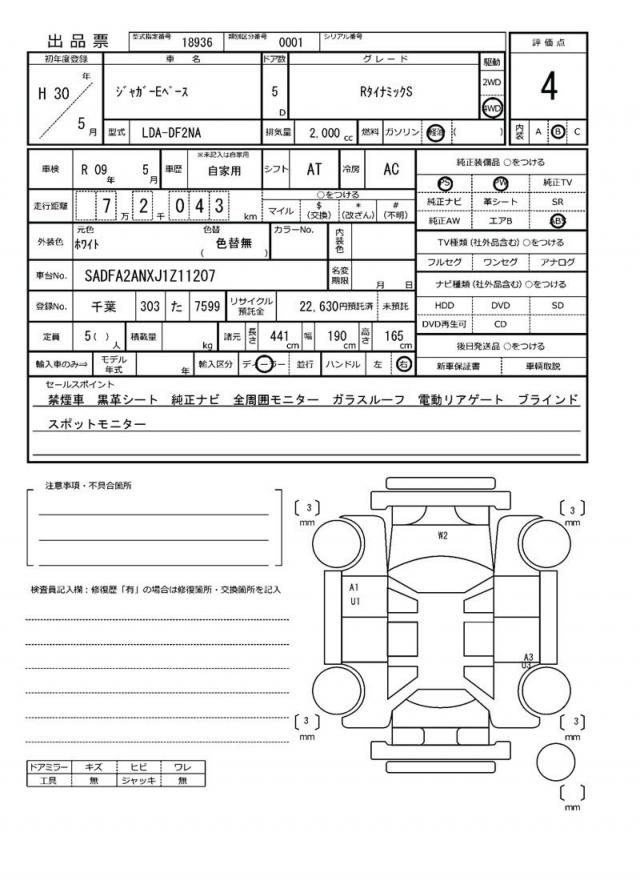 出品票 型式指定番号 18936 類別区分番号 0001 シリアル番号
初年度登録 車名 ドア数 グレード 駆動 評価点
H 30 年 5 月 ジャガーEペース 5 D RダイナミックS 2WD 4WD 4
型式 LDA-DF2NA 排気量 2,000 cc 燃料 ガソリン 軽油 ( ) 内装 A B C
車検 R 09 年 5 月 車歴 ※未記入は自家用 自家用 シフト AT 冷房 AC 純正装備品 ○をつける
PS PW 純正TV
走行距離 7 万 2 千 0 4 3 km ○をつける 純正ナビ 革シート SR
マイル $ (交換) * (改ざん) # (不明) 純正AW エアB ABS
外装色 元色 ホワイト 色替 色替無 ( ) カラーNo. 内装色 TV種類 (社外品含む) ○をつける
フルセグ ワンセグ アナログ
車台No. SADFA2ANXJ1Z11207 名変期限 月 日 ナビ種類 (社外品含む) ○をつける
登録No. 千葉 303 た 7599 リサイクル預託金 22,630円預託済 未預託 HDD DVD SD
DVD再生可 CD
定員 5( ) 人 積載量 kg 諸元 長さ 441 cm 幅 190 cm 高さ 165 cm 後日発送品 ○をつける
輸入車のみ⇒ モデル年式 年 輸入区分 ディーラー 並行 ハンドル 左 右 新車保証書 車輌取説
セールスポイント
禁煙車 黒革シート 純正ナビ 全周囲モニター ガラスルーフ 電動リアゲート ブラインド
スポットモニター
注意事項・不具合箇所
検査員記入欄：修復歴「有」の場合は修復箇所・交換箇所を記入
[ 3 ] mm [ 3 ] mm
W2
A1
U1
A3
U3
[ 3 ] mm [ 3 ] mm
[ ] mm
ドアミラー キズ ヒビ ワレ
工具 無 ジャッキ 無